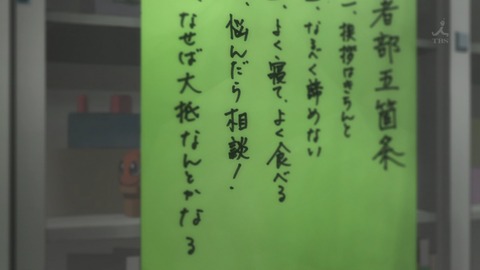 者部五箇条
一、挨拶はきちんと
一、なるべく諦めない
一、よく寝て、よく食べる
、悩んだら相談!
、なせば大抵なんとかなる
TBS